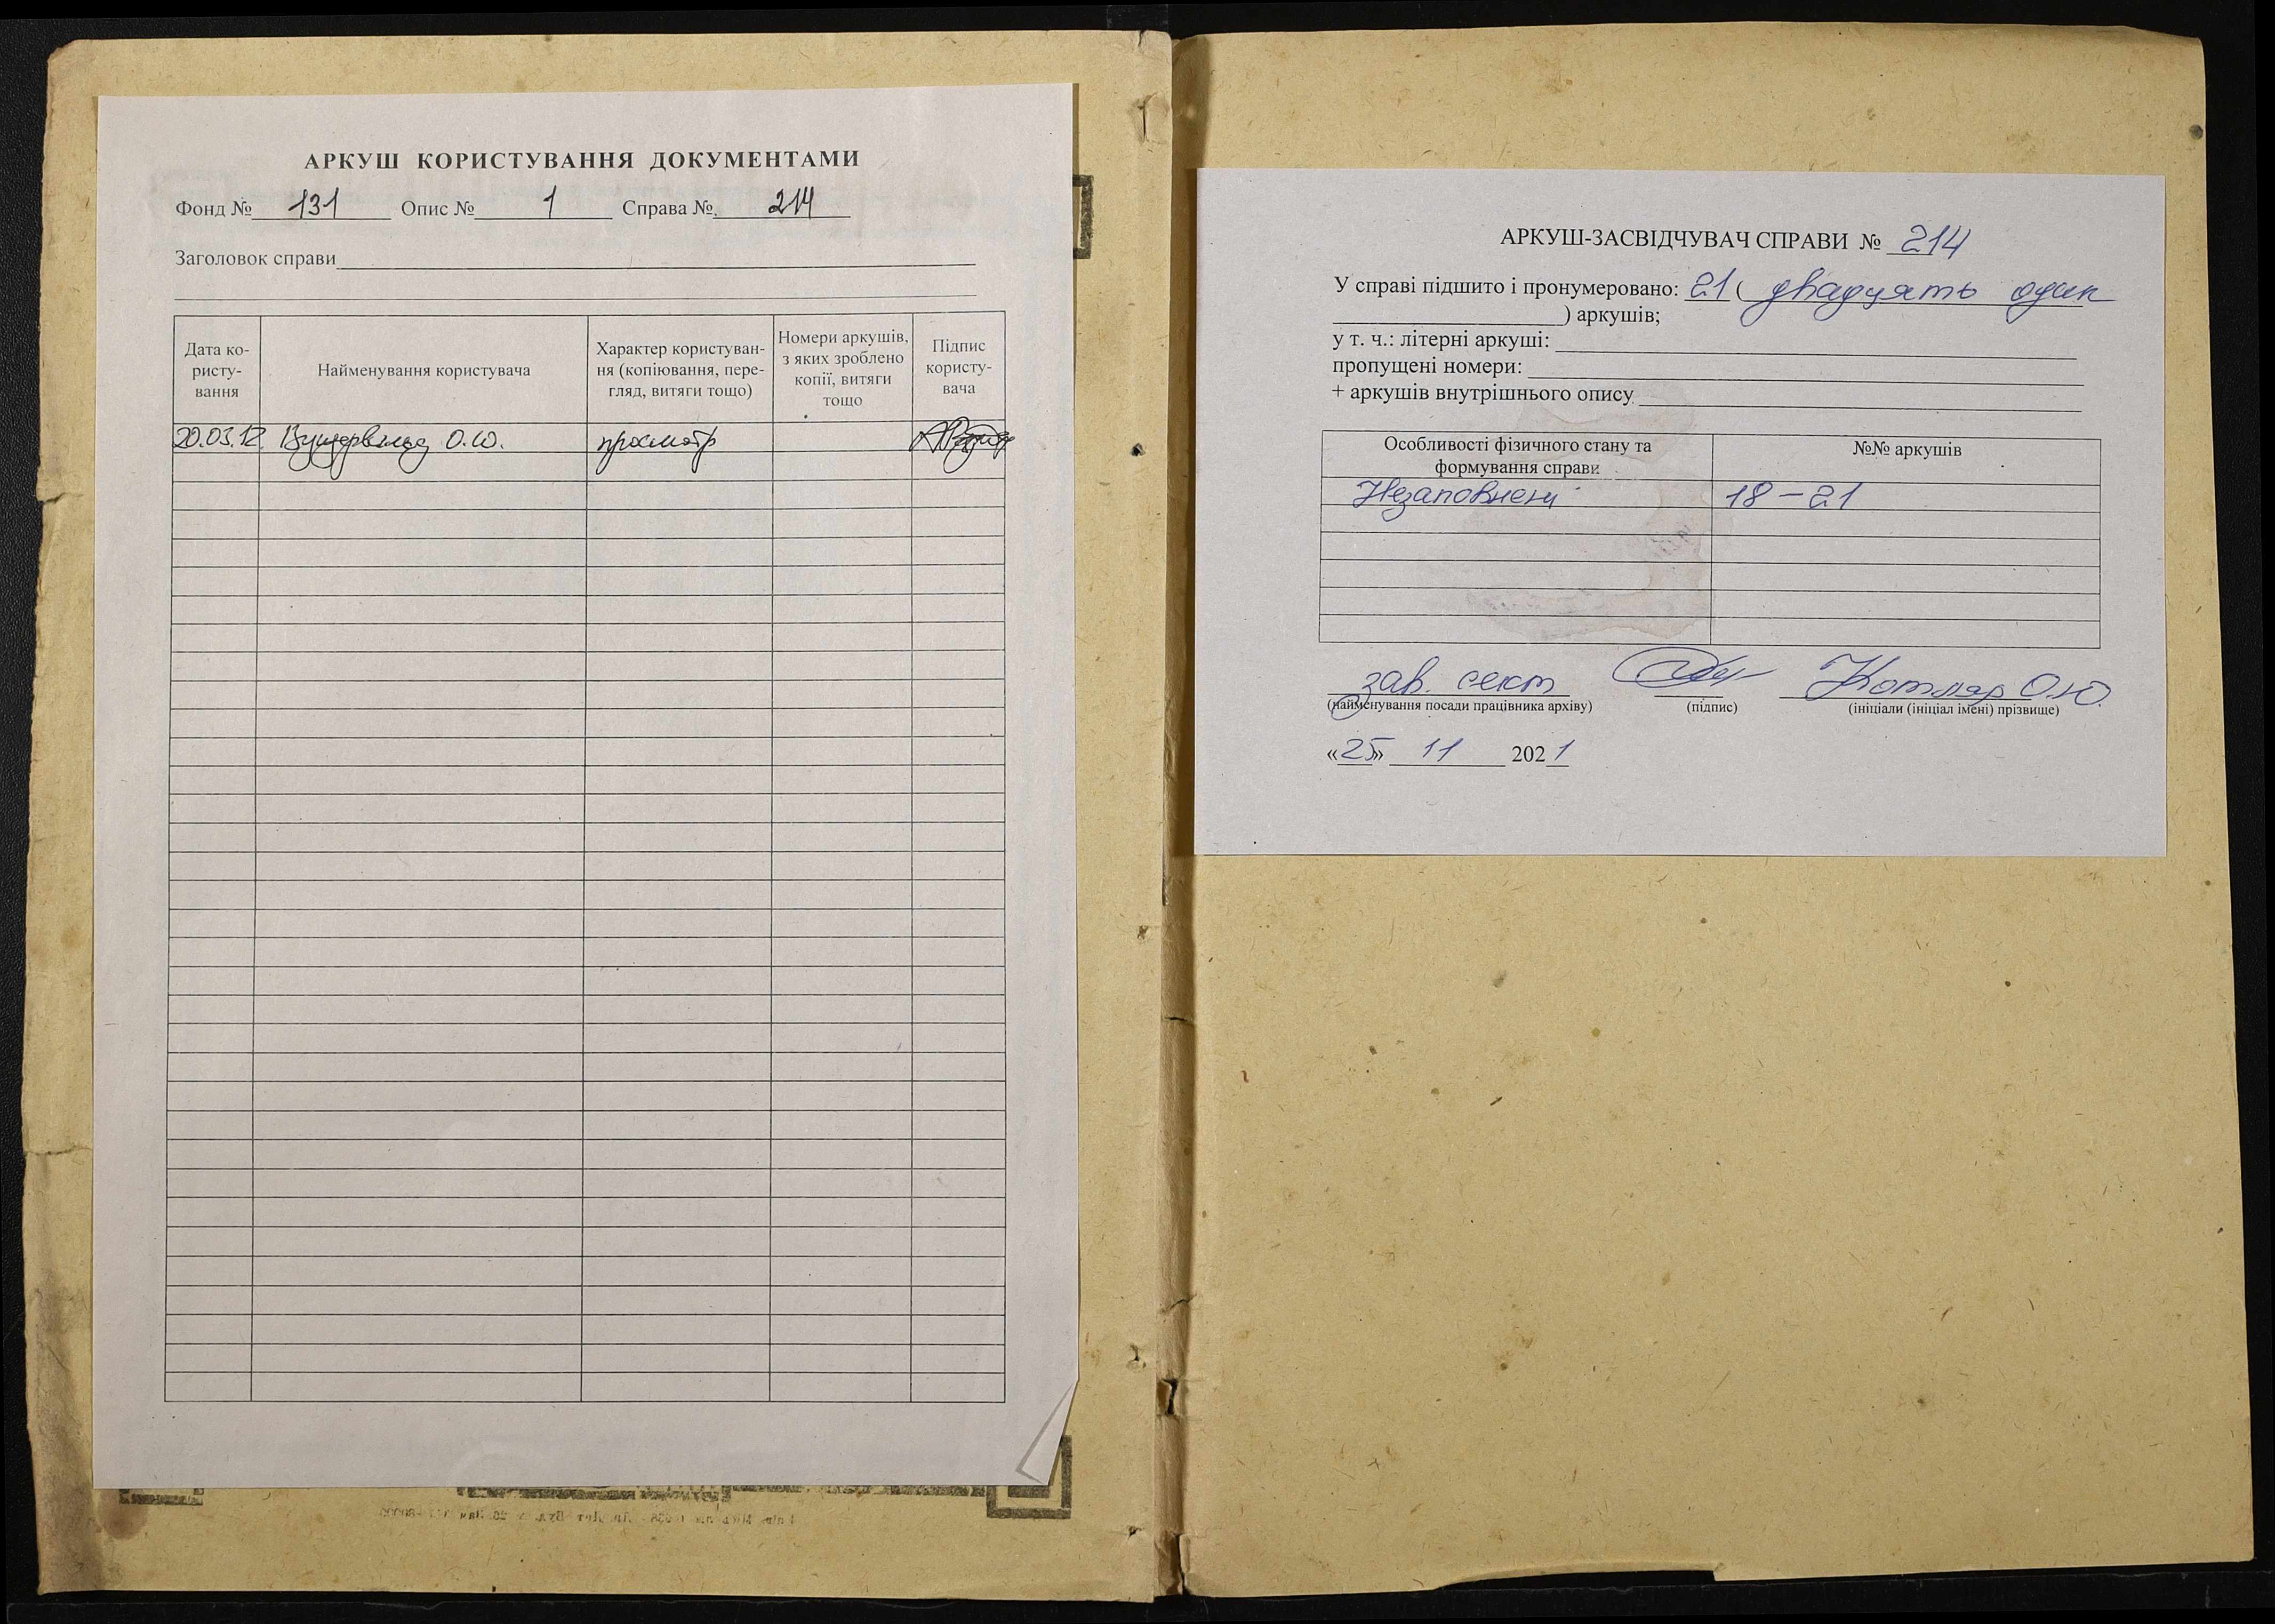 АРКУШ КОРИСТУВАННЯ ДОКУМЕНТАМИ
Фонд № 131 Опис № 1 Справа № 214
Заголовок справи
Дата ко-
ристу-
вання
Найменування користувача
Характер користуван-
ня (копіювання, пере-
гляд, витяги тощо)
Номери аркушів,
з яких зроблено
копії, витяги
тощо
Підпис
користу-
вача
20.03.12 О.Ю. просмотр
АРКУШ-ЗАСВІДЧУВАЧ СПРАВИ № 214
У справі підшито і пронумеровано: 21 ( двадцять один
) аркушів;
у т. ч.: літерні аркуші:
пропущені номери:
+ аркушів внутрішнього опису
Особливості фізичного стану та
формування справи
№№ аркушів
Незаповнені 18 – 21
зав. сект Котляр О.Ю.
(найменування посади працівника архіву) (підпис) (ініціали (ініціал імені) прізвище)
«25» 11 2021